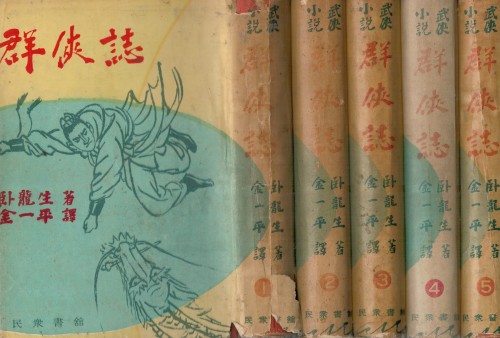 群俠誌
臥龍生 著
金一平 譯
民衆書舘
武俠
小説
群俠誌
臥龍生 著
金一平 譯
1
民衆書舘
武俠
小説
群俠誌
臥龍生 著
金一平 譯
2
民衆書舘
武俠
小説
群俠誌
臥龍生 著
金一平 譯
3
民衆書舘
武俠
小説
群俠誌
臥龍生 著
金一平 譯
4
民衆書舘
武俠
小説
群俠誌
臥龍生 著
金一平 譯
5
民衆